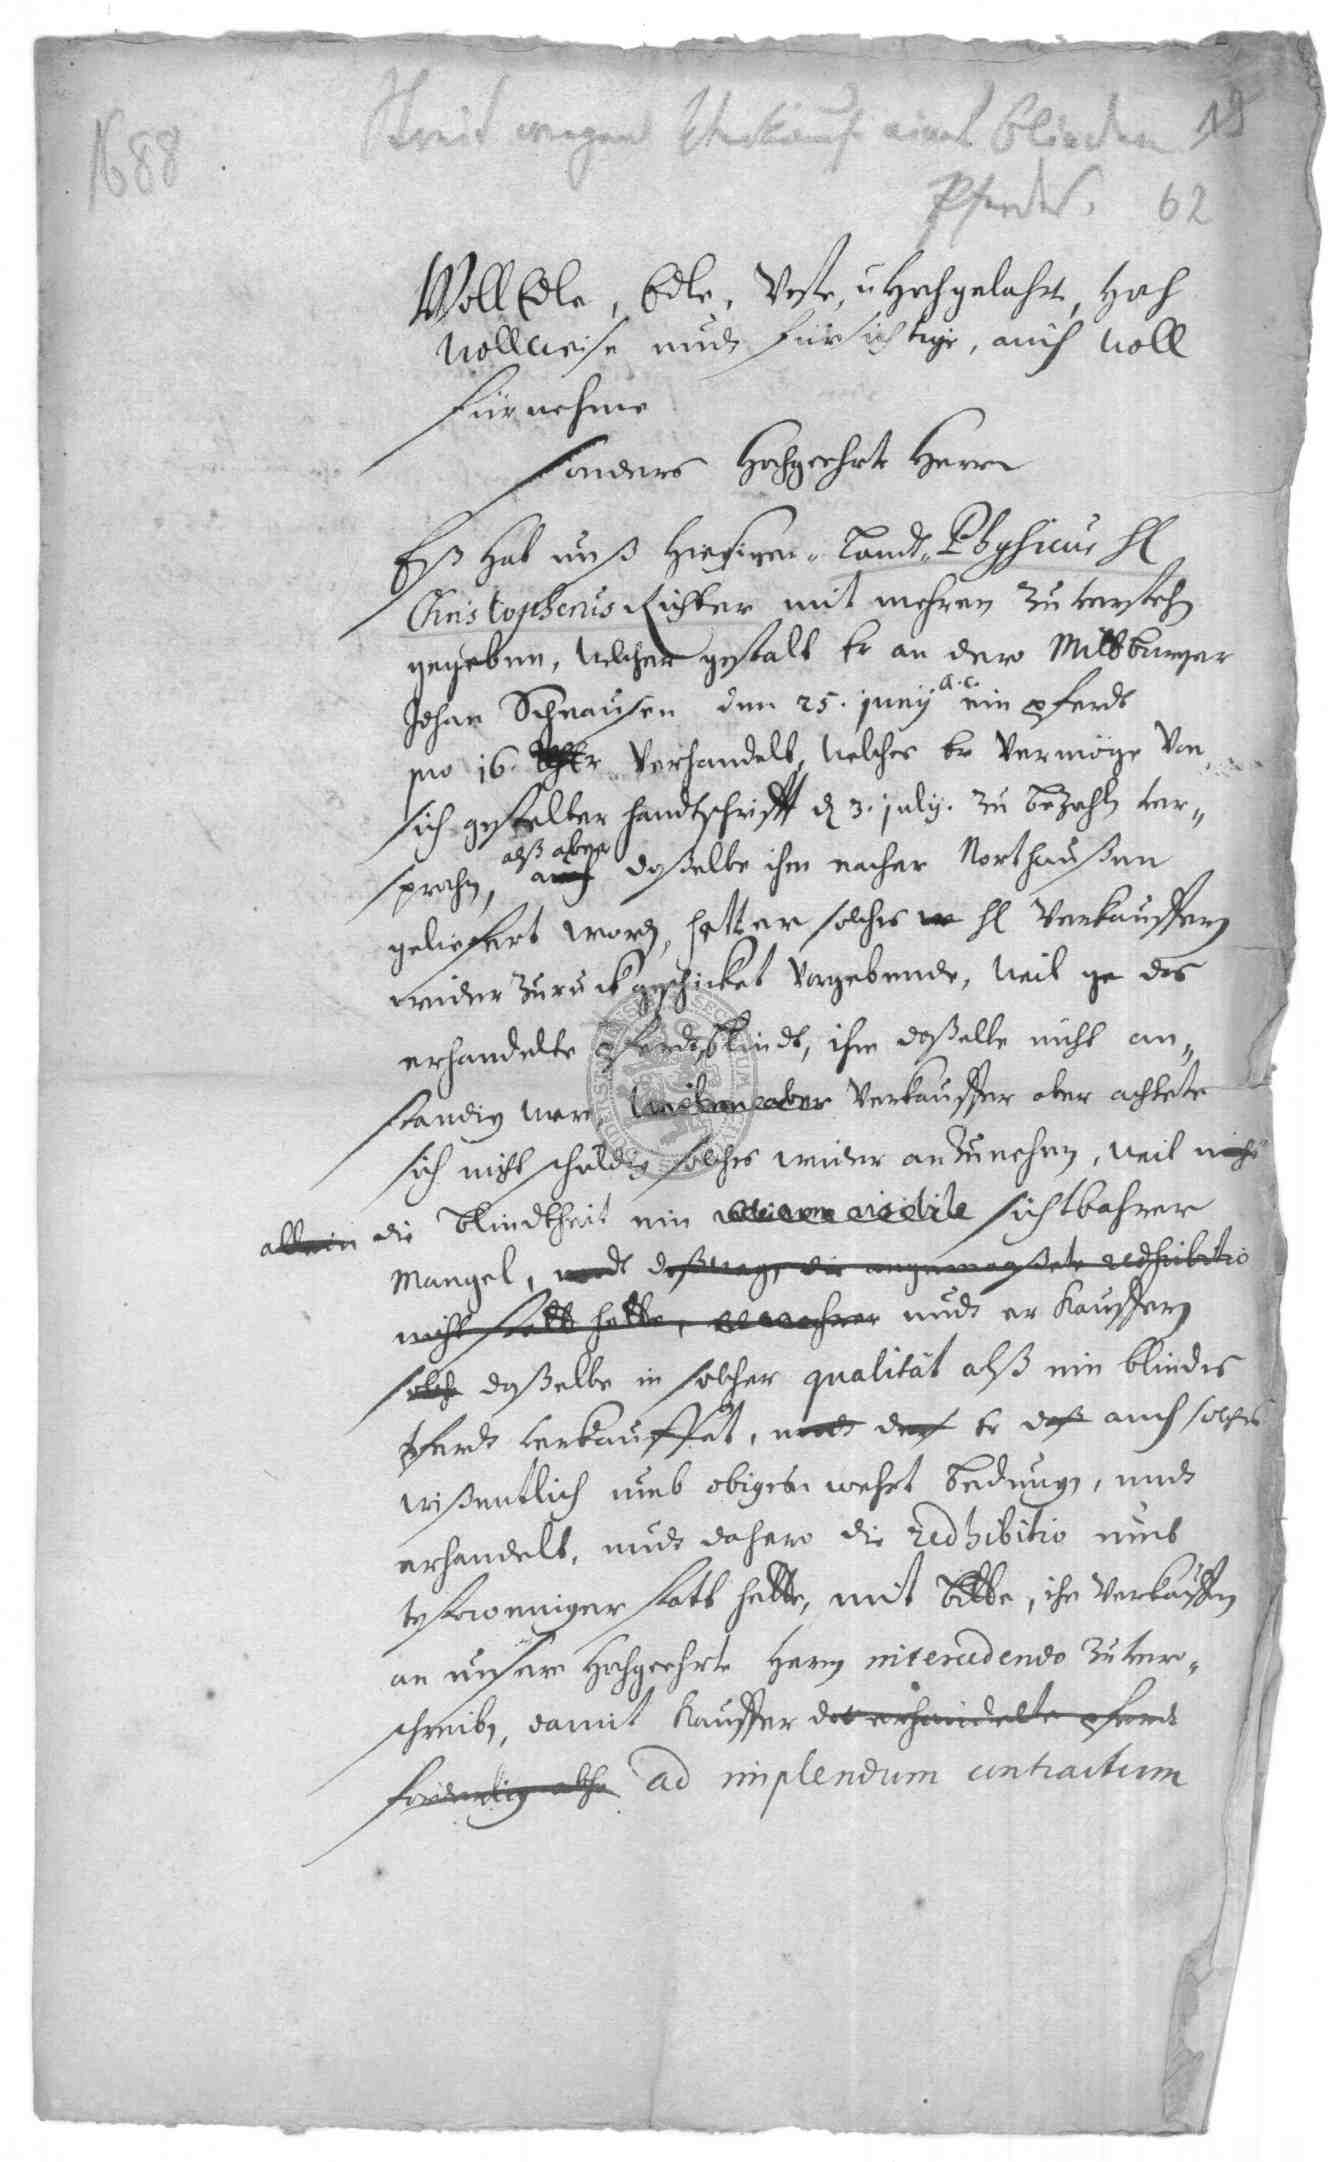 1688
Streit wegen Verkauf eines blinden 19
Pferdes. 62
WollEdle, Edle, Veste, u Hochgelahrte, Hoch
wollweise undt fürsichtige, auch woll
fürnehme
sonders Hochgeehrte Herrn
Eß hat unß hiesiger Landt-Physicus H
Christophorus Richter mit mehren zu versteh
gegeben, welcher gestalt Er an dero Mittburger
Johan Schnausen den 25. junij a.c. ein pferdt
pro 16. thlr verhandelt, welches Er vermöge von
sich gestelter handtschrifft d 3. julij. zu bezahlen ver-
sprochen, alß aber auch daßelbe ihm nacher Northaußen
geliefert worden, hette er solches H Verkauffern
wider zuruck geschicket vorgebende, weil das
erhandelte pferdt blindt, ihm daßelbe nicht an-
standig were, Verkauffer aber achtete
sich nicht schuldig solches wider anzunehmen, weil nicht
allein die blindtheit ein vitium visibile sichtbahrer
Mangel, undt deßwegen die angemaßete redhibitio
nicht statt hette, undt er Kauffern
solch daßelbe in solcher qualität alß ein blindes
pferdt verkauffet, undt daß Er daß auch solches
wißentlich umb obigen wehrt bedungen, undt
erhandelt, undt dahero die redhibitio umb
desto weniger statt hette, mit bitte, ihn Verkauffern
an unsere Hochgeehrte Herrn intercedendo zu ver-
schreiben, damit Kauffer das erhandelte pferdt
ad implendum contractum